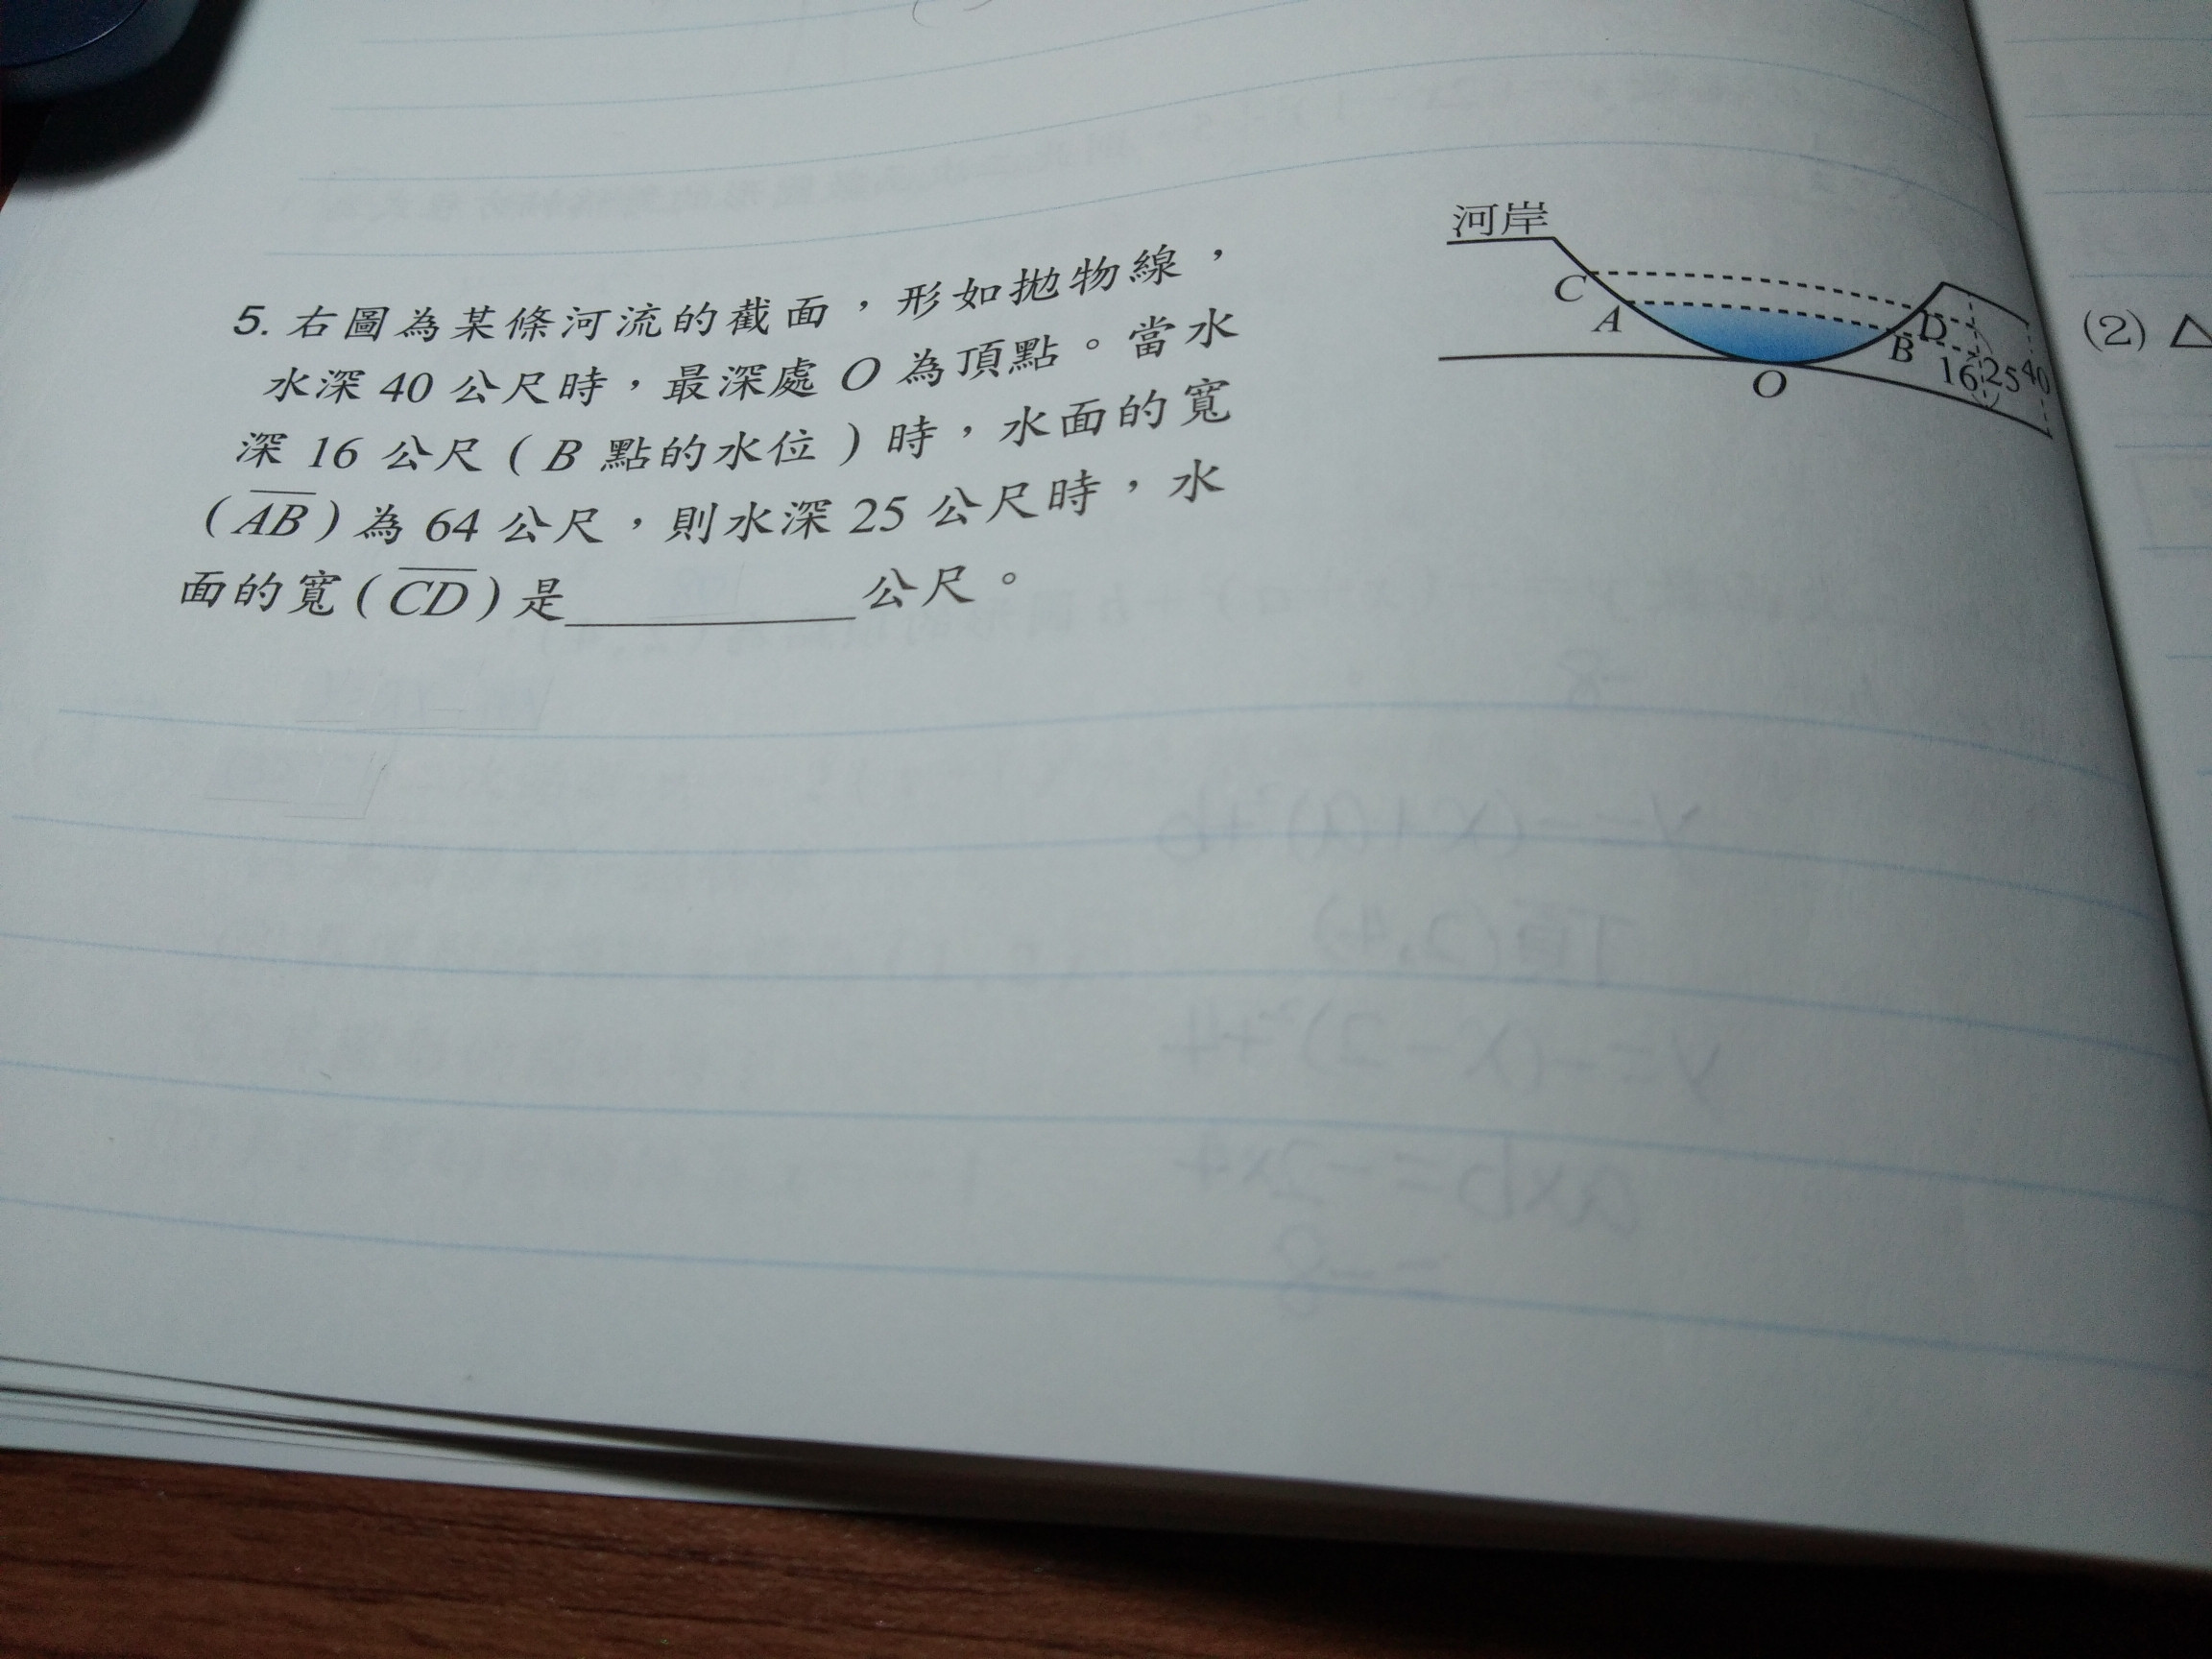 5. 右圖為某條河流的截面，形如拋物線，
水深 40 公尺時，最深處 O 為頂點。當水
深 16 公尺 ( B 點的水位 ) 時，水面的寬
( AB ) 為 64 公尺，則水深 25 公尺時，水
面的寬 ( CD ) 是__________公尺。
河岸
C
A
D
B
O
16
25
40
(2) △